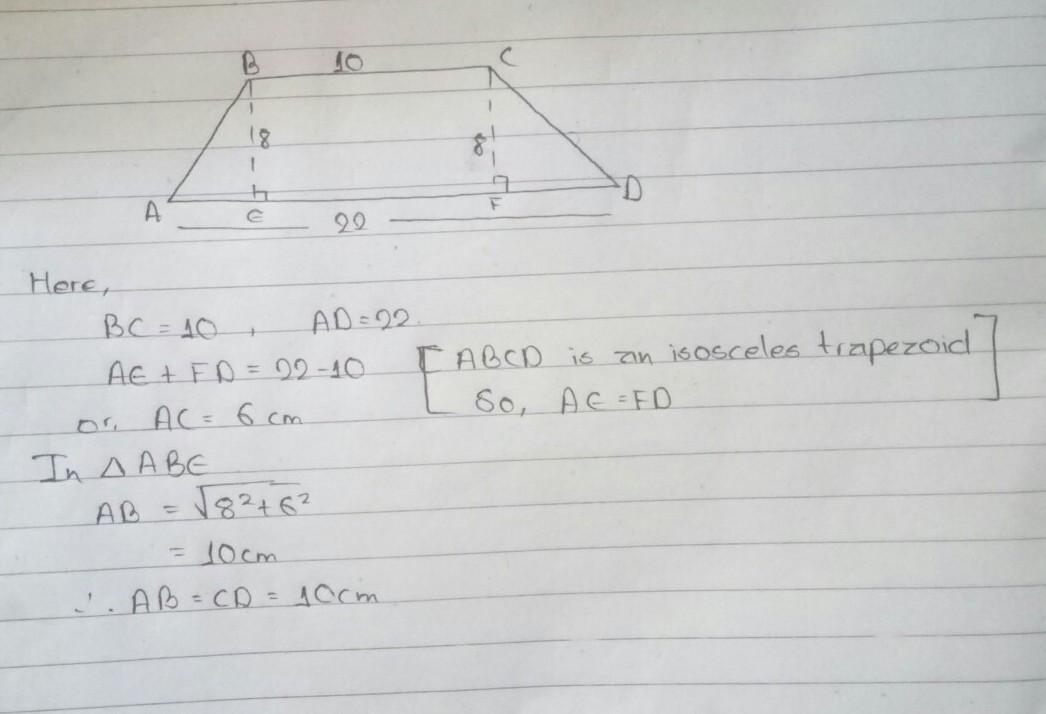 B 10 C
8 8
A E F D
22
Here,
BC = 10 , AD = 22.
AE + FD = 22 - 10 [ABCD is an isosceles trapezoid
or, AC = 6 cm So, AE = FD]
In △ ABE
AB = √8²+6²
= 10cm
∴ AB = CD = 10cm